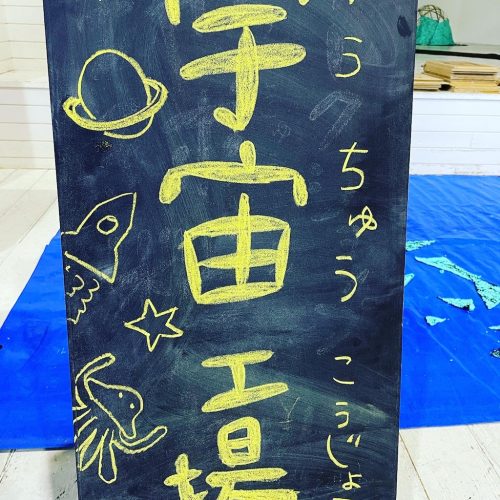 宇宙工場
うちゅうこうじょ